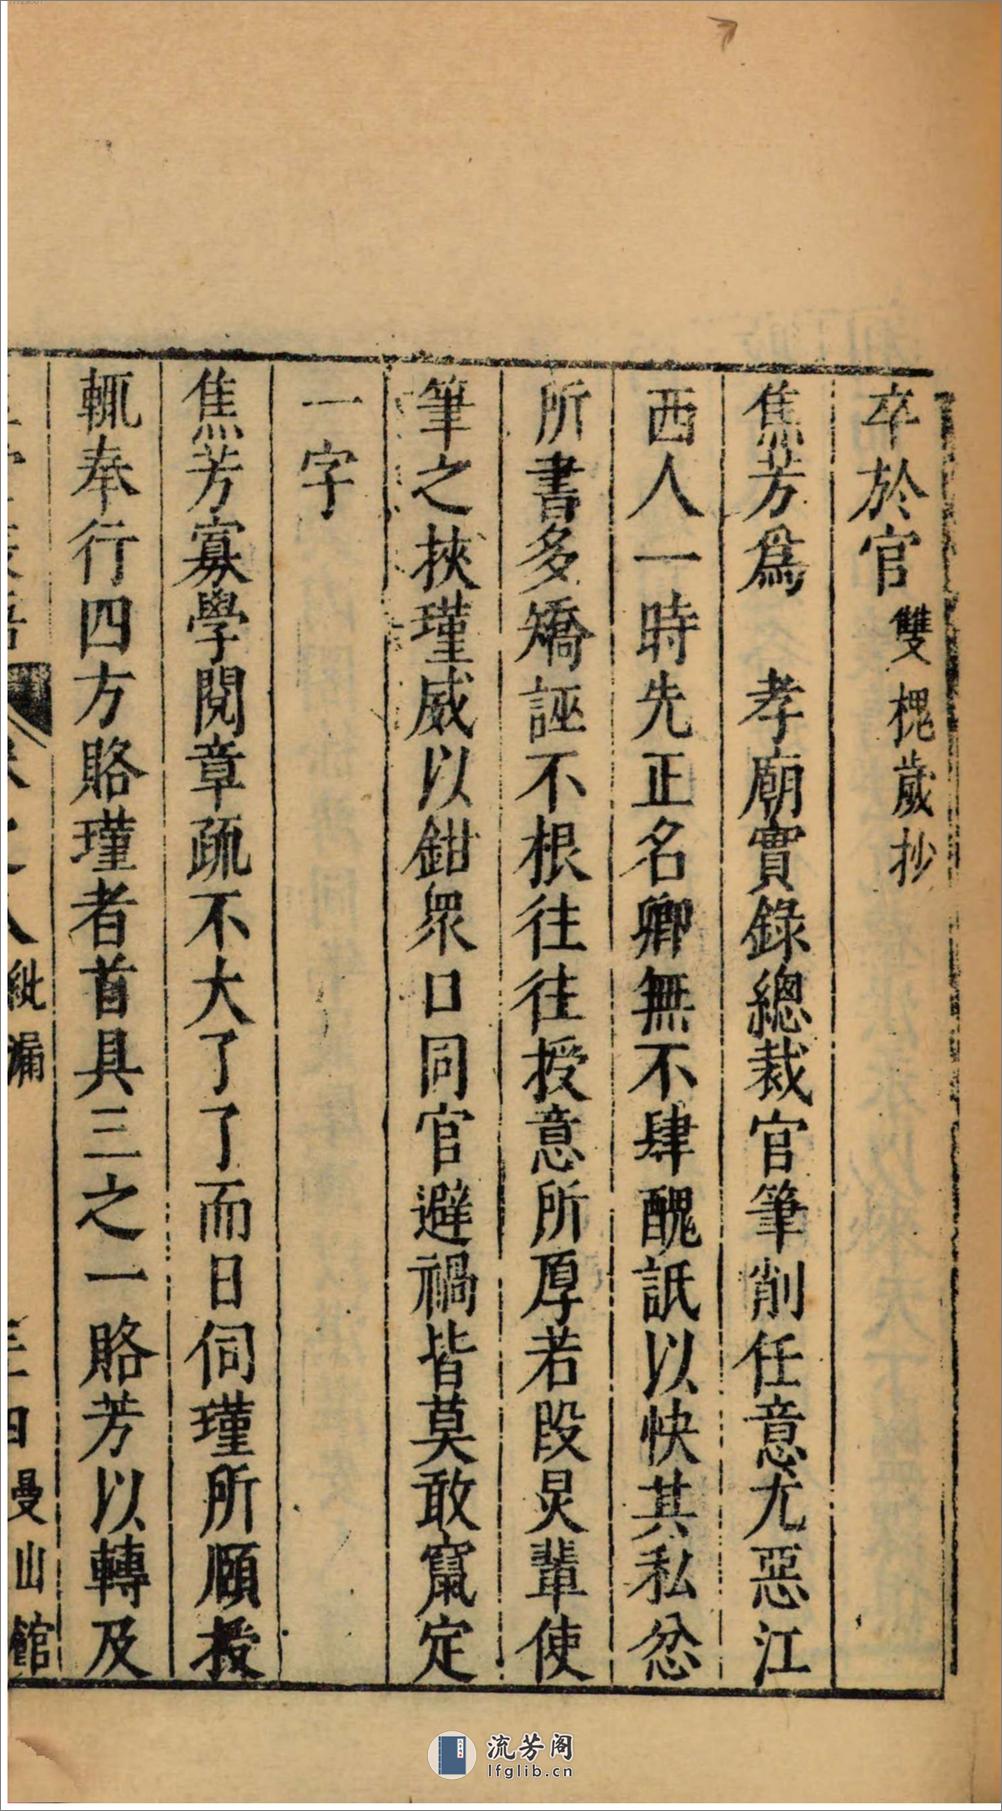 卒於官 雙槐歲抄
焦芳爲 孝廟實錄總裁官筆削任意尤惡江
西人一時先正名卿無不肆醜詆以快其私忿
所書多矯誣不根往往授意所厚若段炅輩使
筆之挾瑾威以鉗衆口同官避禍皆莫敢竄定
一字
焦芳寡學閱章疏不大了了而日伺瑾所頤授
輒奉行四方賂瑾者首具三之一賂芳以轉及
卷之八 紕漏 曼山館
流芳阁
lfglib.cn